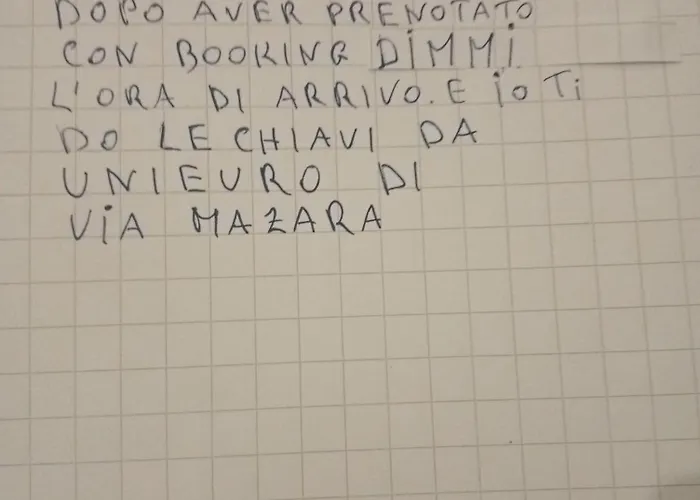 DOPO AVER PRENOTATO
CON BOOKING DIMMI
L'ORA DI ARRIVO. E iO Ti
DO LE CHIAVI DA
UNIEURO DI
ViA MAZARA